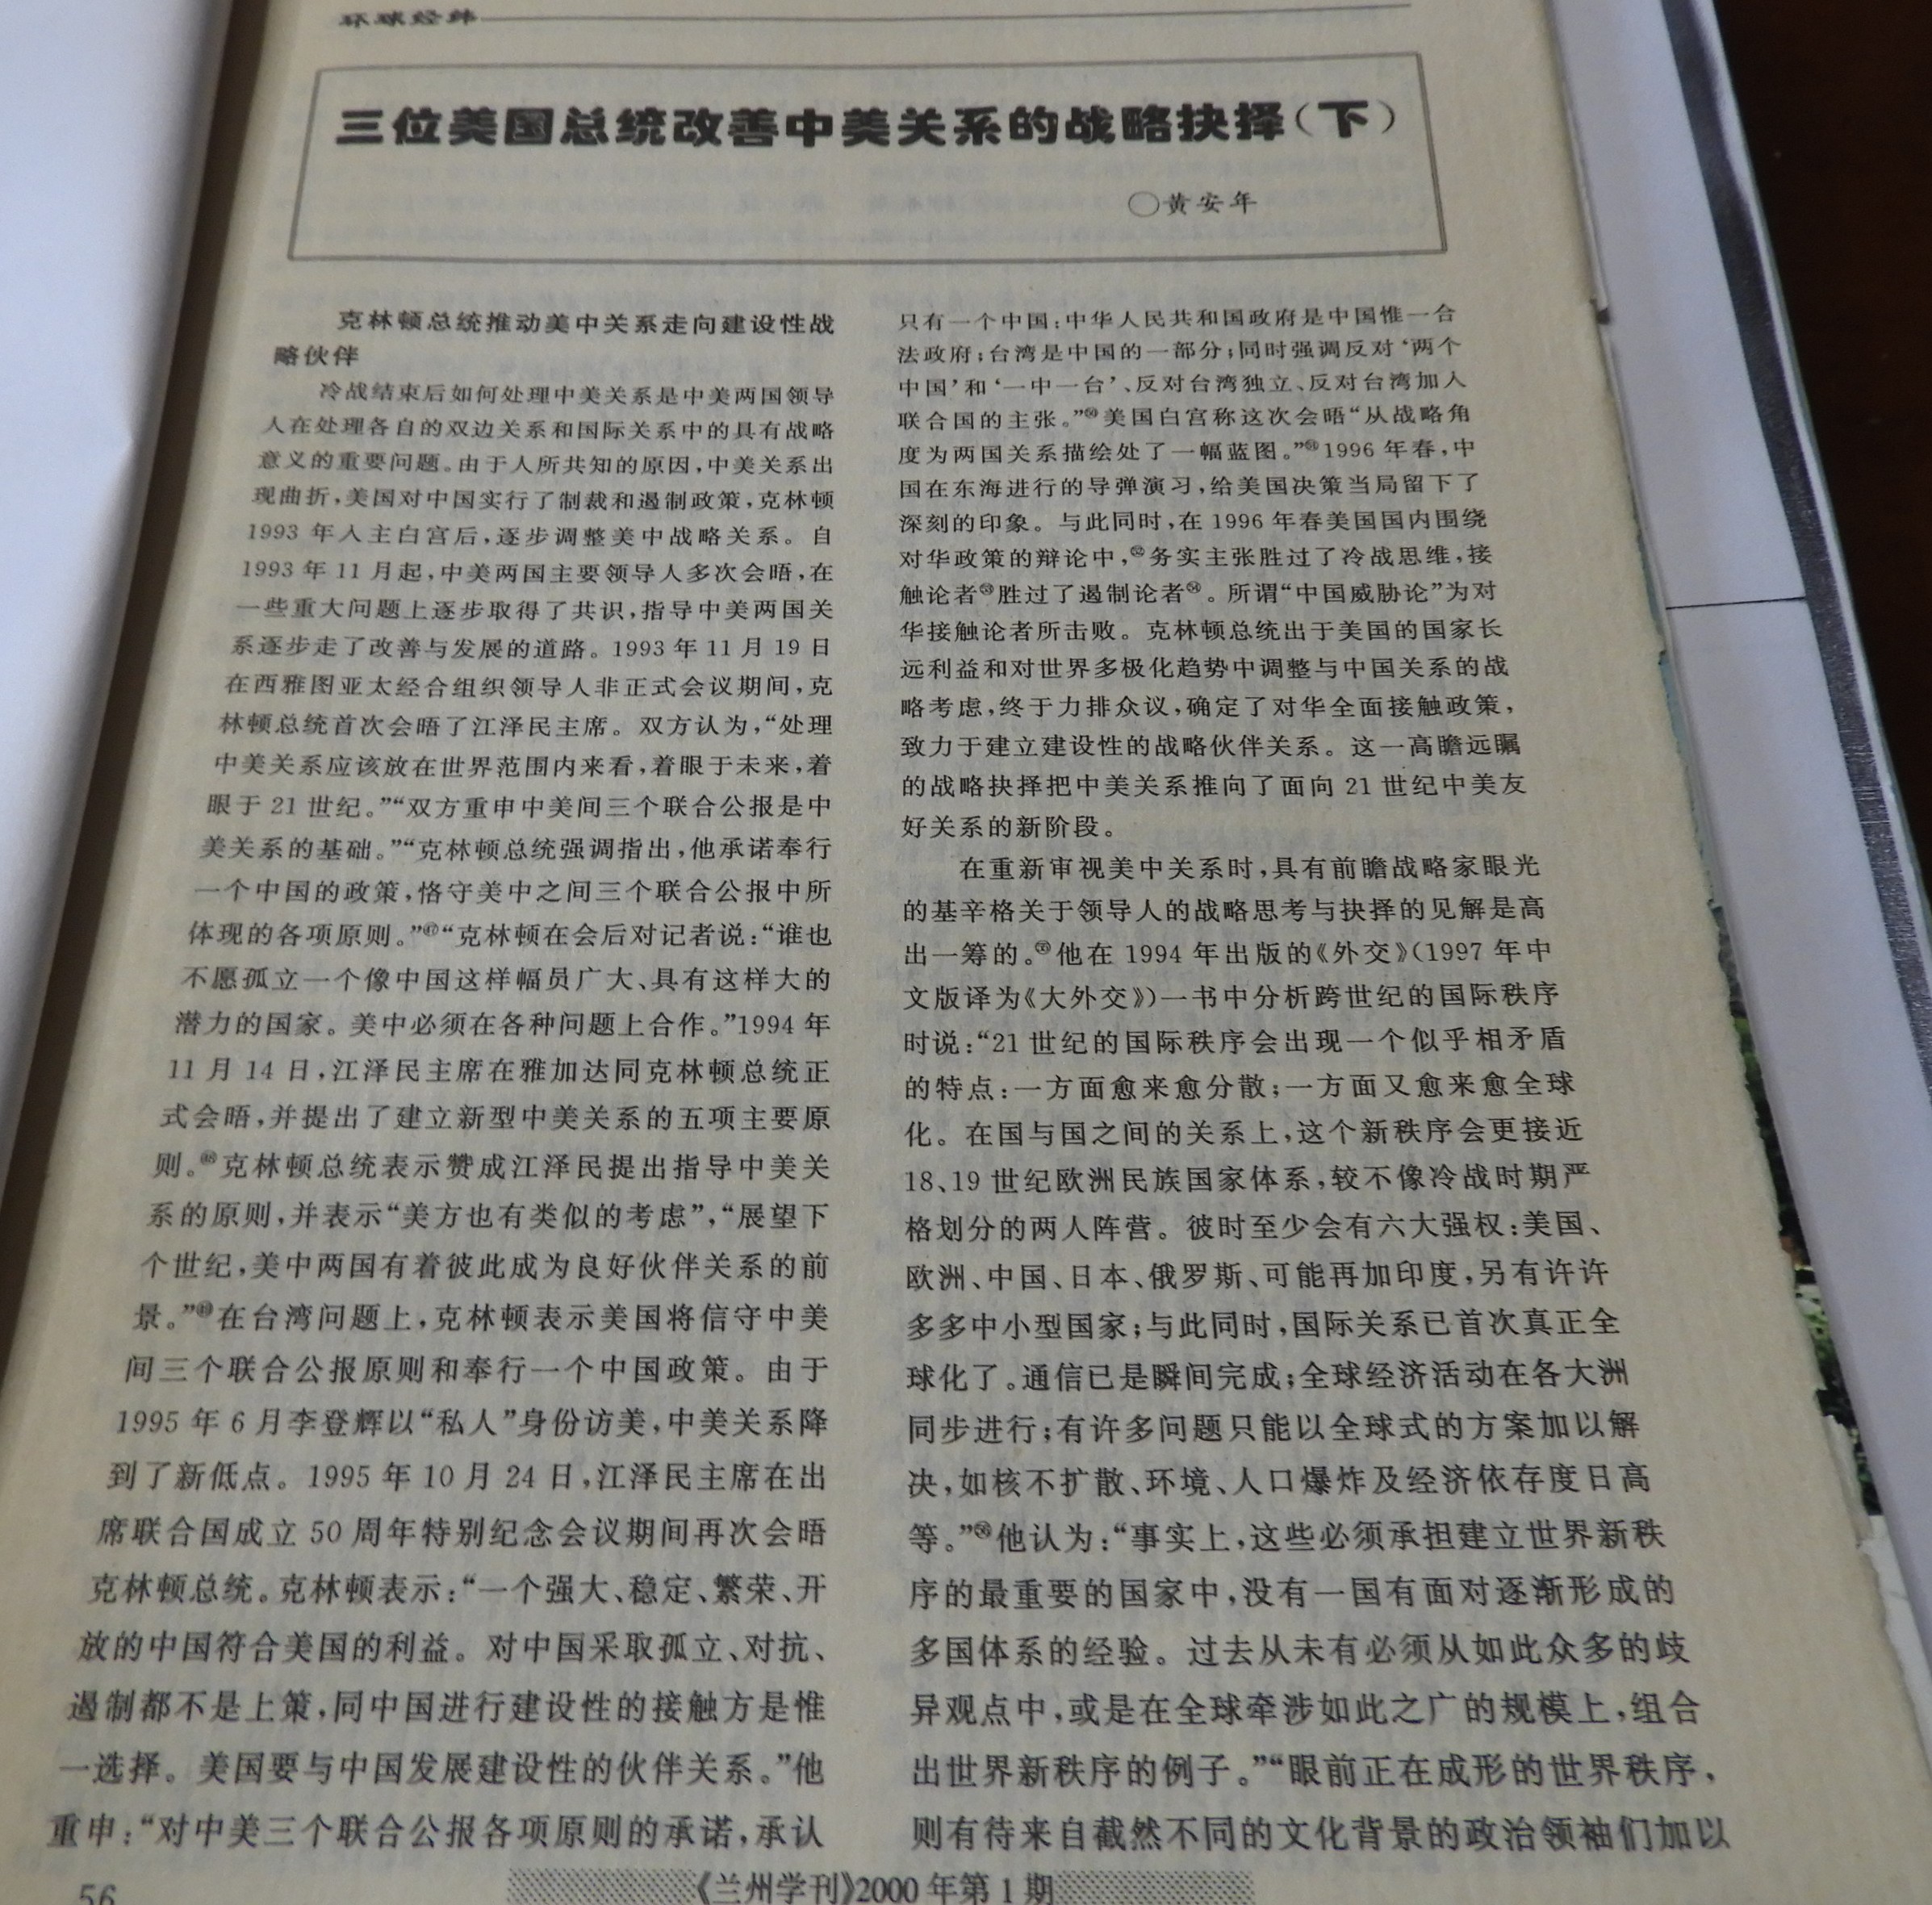 环球经纬
三位美国总统改善中美关系的战略抉择(下)
○黄安年
克林顿总统推动美中关系走向建设性战
略伙伴
冷战结束后如何处理中美关系是中美两国领导
人在处理各自的双边关系和国际关系中的具有战略
意义的重要问题。由于人所共知的原因,中美关系出
现曲折,美国对中国实行了制裁和遏制政策,克林顿
1993年入主白宫后,逐步调整美中战略关系。自
1993年11月起,中美两国主要领导人多次会晤,在
一些重大问题上逐步取得了共识,指导中美两国关
系逐步走了改善与发展的道路。1993年11月19日
在西雅图亚太经合组织领导人非正式会议期间,克
林顿总统首次会晤了江泽民主席。双方认为,“处理
中美关系应该放在世界范围内来看,着眼于未来,着
眼于21世纪。”“双方重申中美间三个联合公报是中
美关系的基础。”“克林顿总统强调指出,他承诺奉行
一个中国的政策,恪守美中之间三个联合公报中所
体现的各项原则。”㊼“克林顿在会后对记者说:“谁也
不愿孤立一个像中国这样幅员广大、具有这样大的
潜力的国家。美中必须在各种问题上合作。”1994年
11月14日,江泽民主席在雅加达同克林顿总统正
式会晤,并提出了建立新型中美关系的五项主要原
则。㊽克林顿总统表示赞成江泽民提出指导中美关
系的原则,并表示“美方也有类似的考虑”,“展望下
个世纪,美中两国有着彼此成为良好伙伴关系的前
景。”㊾在台湾问题上,克林顿表示美国将信守中美
间三个联合公报原则和奉行一个中国政策。由于
1995年6月李登辉以“私人”身份访美,中美关系降
到了新低点。1995年10月24日,江泽民主席在出
席联合国成立50周年特别纪念会议期间再次会晤
克林顿总统。克林顿表示:“一个强大、稳定、繁荣、开
放的中国符合美国的利益。对中国采取孤立、对抗、
遏制都不是上策,同中国进行建设性的接触方是惟
一选择。美国要与中国发展建设性的伙伴关系。”他
重申:“对中美三个联合公报各项原则的承诺,承认
只有一个中国;中华人民共和国政府是中国惟一合
法政府;台湾是中国的一部分;同时强调反对‘两个
中国’和‘一中一台’、反对台湾独立、反对台湾加人
联合国的主张。”㊿美国白宫称这次会晤“从战略角
度为两国关系描绘处了一幅蓝图。”1996年春,中
国在东海进行的导弹演习,给美国决策当局留下了
深刻的印象。与此同时,在1996年春美国国内围绕
对华政策的辩论中,务实主张胜过了冷战思维,接
触论者胜过了遏制论者。所谓“中国威胁论”为对
华接触论者所击败。克林顿总统出于美国的国家长
远利益和对世界多极化趋势中调整与中国关系的战
略考虑,终于力排众议,确定了对华全面接触政策,
致力于建立建设性的战略伙伴关系。这一高瞻远瞩
的战略抉择把中美关系推向了面向21世纪中美友
好关系的新阶段。
在重新审视美中关系时,具有前瞻战略家眼光
的基辛格关于领导人的战略思考与抉择的见解是高
出一筹的。他在1994年出版的《外交》(1997年中
文版译为《大外交》)一书中分析跨世纪的国际秩序
时说:“21世纪的国际秩序会出现一个似乎相矛盾
的特点:一方面愈来愈分散;一方面又愈来愈全球
化。在国与国之间的关系上,这个新秩序会更接近
18、19世纪欧洲民族国家体系,较不像冷战时期严
格划分的两人阵营。彼时至少会有六大强权:美国、
欧洲、中国、日本、俄罗斯、可能再加印度,另有许许
多多中小型国家;与此同时,国际关系已首次真正全
球化了。通信已是瞬间完成;全球经济活动在各大洲
同步进行;有许多问题只能以全球式的方案加以解
决,如核不扩散、环境、人口爆炸及经济依存度日高
等。”他认为:“事实上,这些必须承担建立世界新秩
序的最重要的国家中,没有一国有面对逐渐形成的
多国体系的经验。过去从未有必须从如此众多的歧
异观点中,或是在全球牵涉如此之广的规模上,组合
出世界新秩序的例子。”“眼前正在成形的世界秩序,
则有待来自截然不同的文化背景的政治领袖们加以
56
《兰州学刊》2000年第1期